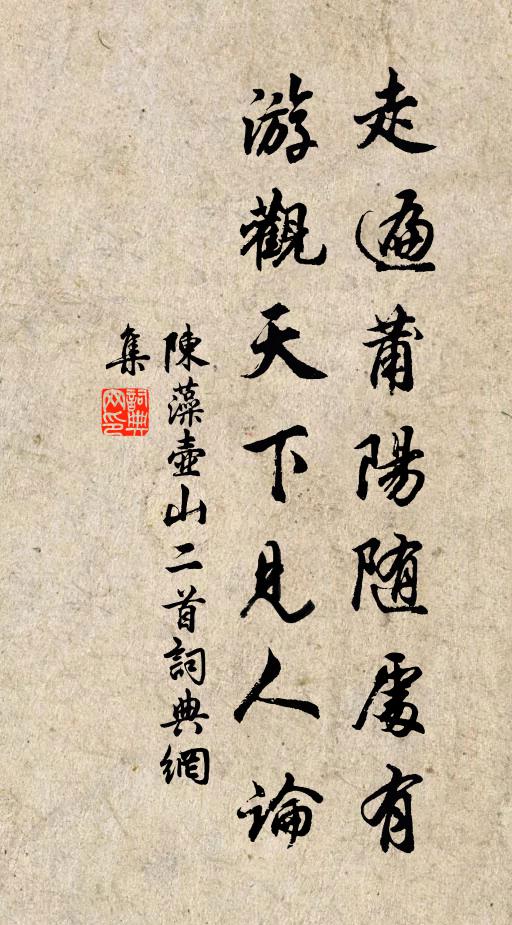 走遍莆陽随處有
游觀天下見人論
陳藻壺山二首詞典網
集
詞典
网印